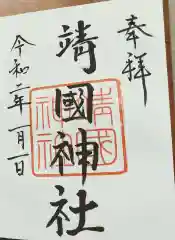 奉拝
靖國神社
令和二年一月一日
靖國
神社